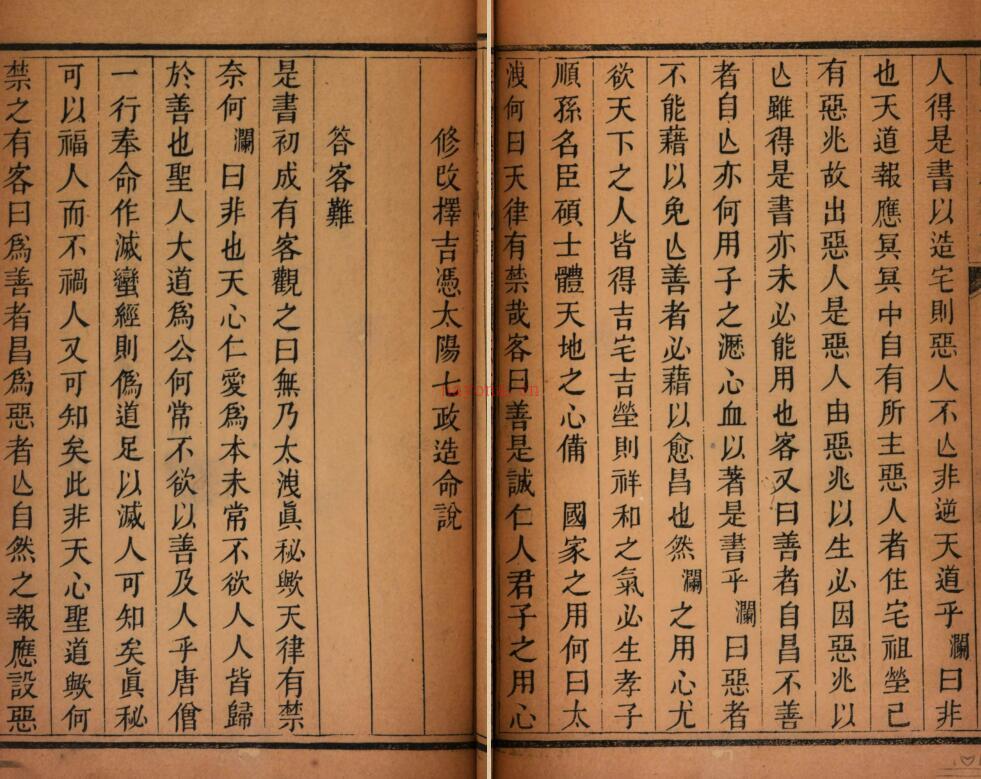 修改擇吉憑太陽七政造命說
答客難
是書初成有客觀之曰無乃太洩眞秘歟天律有禁
奈何瀾曰非也天心仁愛爲本未常不欲人人皆歸
於善也聖人大道爲公何常不欲以善及人乎唐僧
一行奉命作滅蠻經則僞道足以滅人可知矣眞秘
可以福人而不禍人又可知矣此非天心聖道歟何
禁之有客曰爲善者昌爲惡者亾自然之報應設惡
人得是書以造宅則惡人不亾非逆天道乎瀾曰非
也天道報應冥冥中自有所主惡人者住宅祖塋已
有惡兆故出惡人是惡人由惡兆以生必因惡兆以
亾雖得是書亦未必能用也客又曰善者自昌不善
者自亾亦何用子之瀝心血以著是書乎瀾曰惡者
不能藉以免亾善者必藉以愈昌也然瀾之用心尤
欲天下之人皆得吉宅吉塋則祥和之氣必生孝子
順孫名臣碩士體天地之心備 國家之用何曰太
洩何曰天律有禁哉客曰善是誠仁人君子之用心